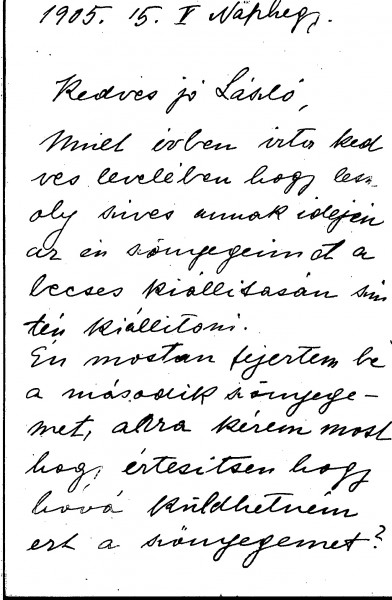 1905. 15. V Náphegy.
Kedves jó László,
Mult évben irta ked
ves levelében hogy lesz
oly sives annak idején
az én szönyegeimet a
becses kiállitasán szin
tén kiállitani.
Én mostan fejeztem bé
a második szönyege-
met, arra kérem most
hogy értesitsen hogy
hová küldhetném
ezt a szönyegemet?